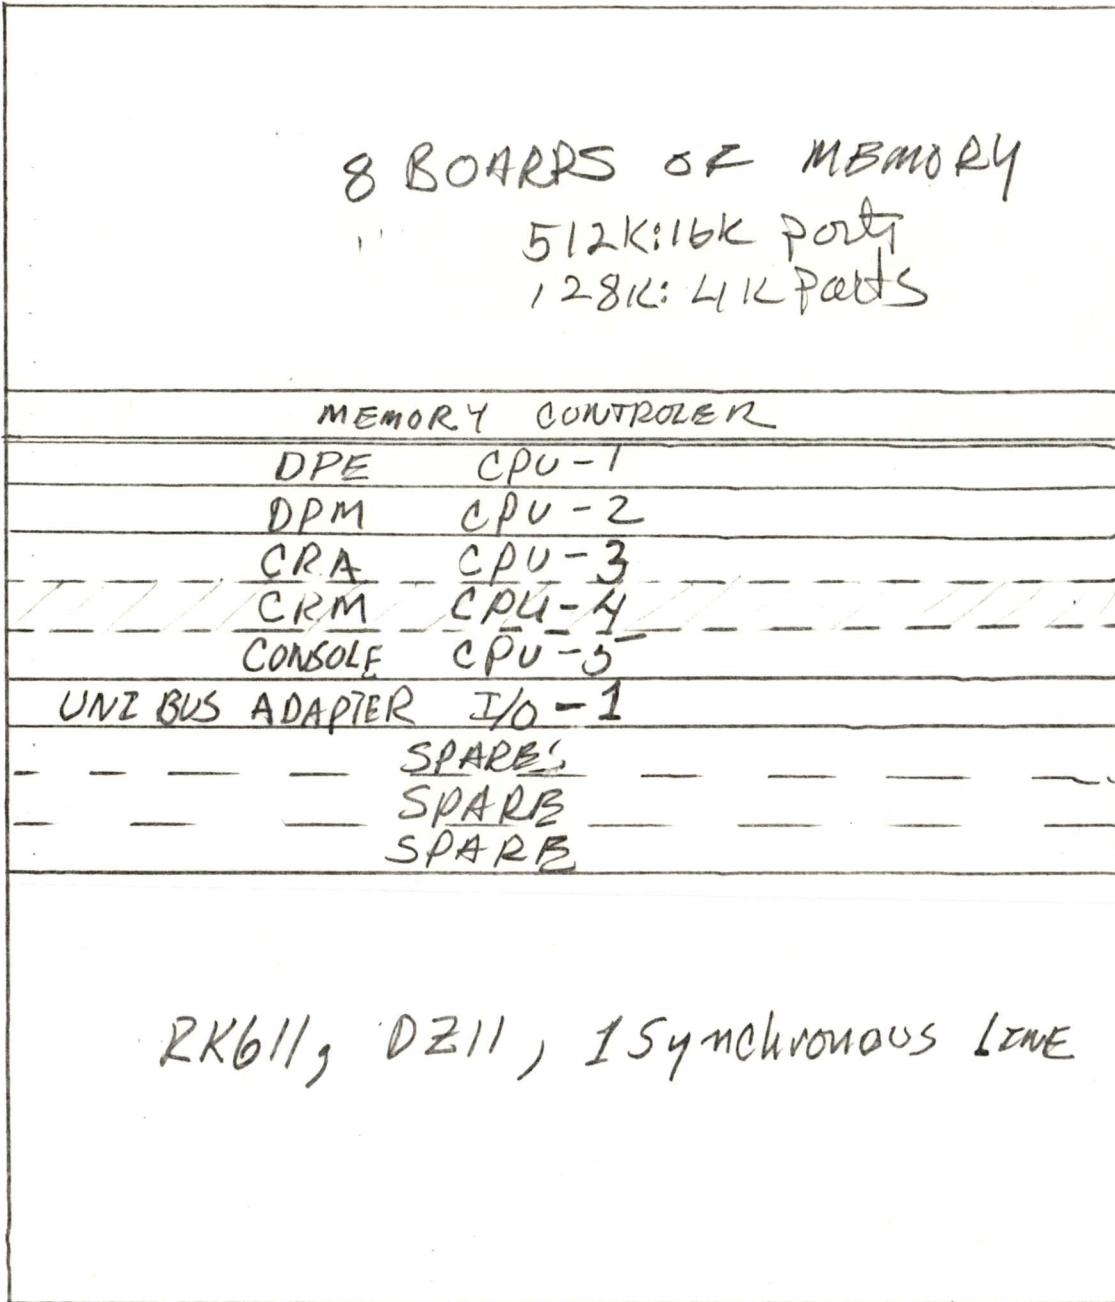 8 BOARDS OF MEMORY
" 512K:16K parts
128K: 4K Parts
MEMORY CONTROLER
DPE CPU-1
DPM CPU-2
CRA CPU-3
CRM CPU-4
CONSOLE CPU-5
UNIBUS ADAPTER I/O-1
SPARE
SPARE
SPARE
RK611, DZ11, 1 Synchronous LINE